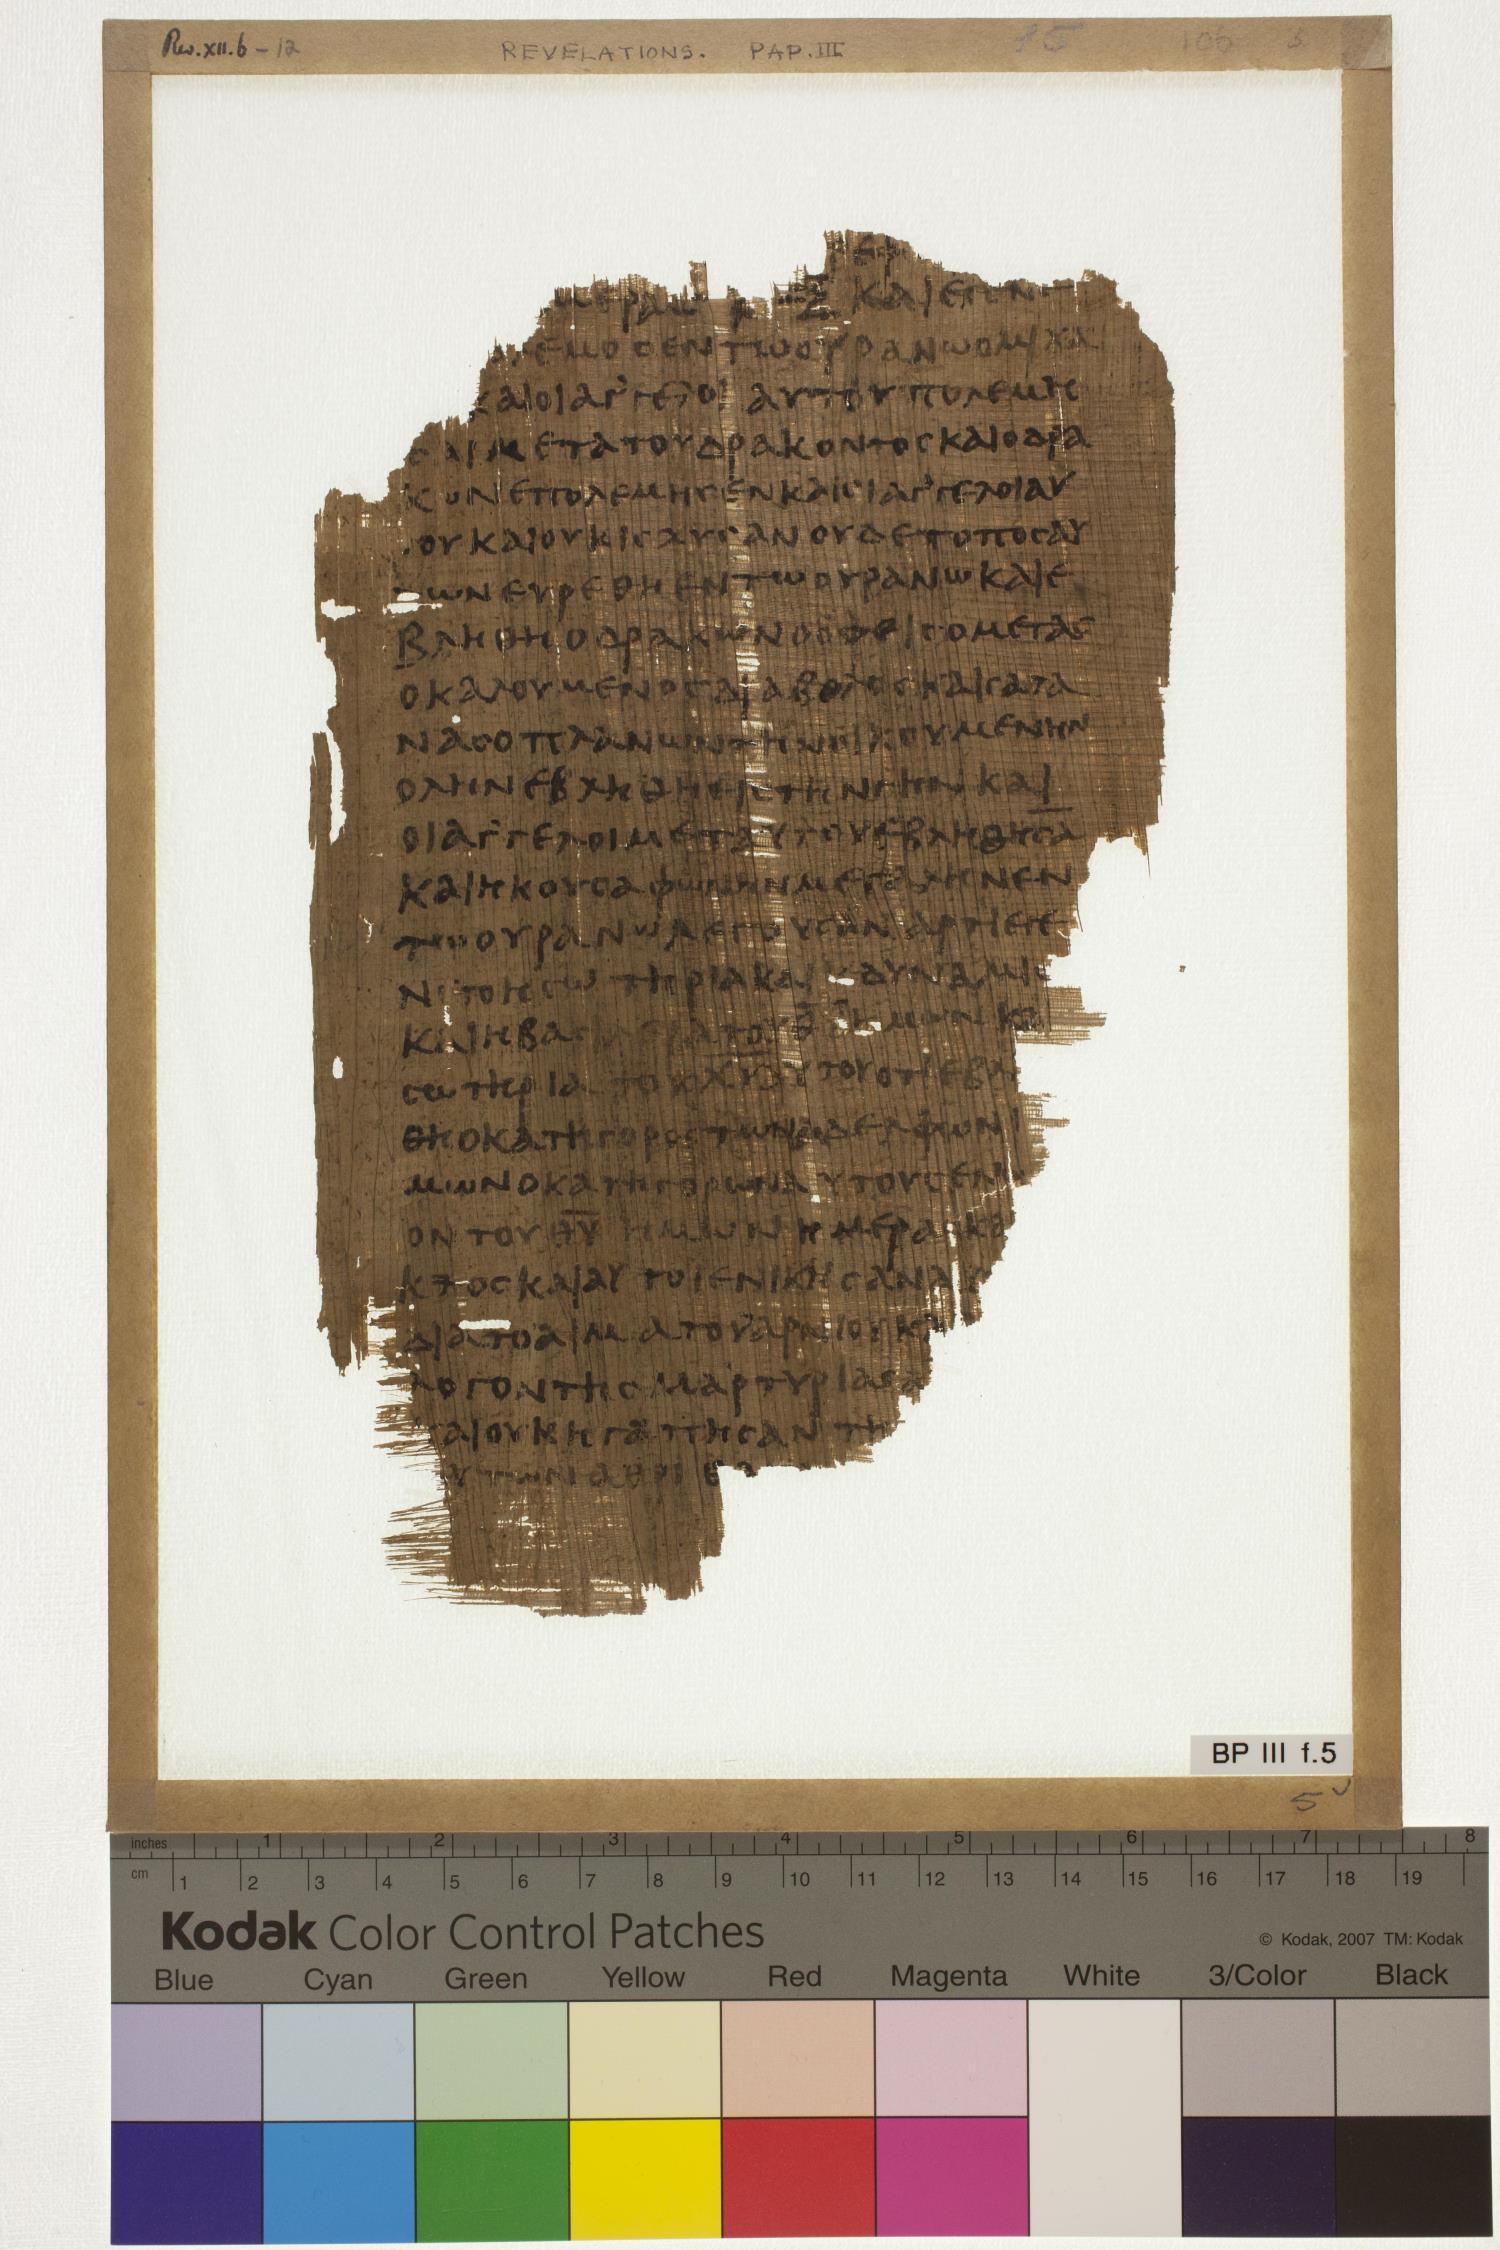 Rev. XII. 6 - 12
REVELATIONS. PAP. III
15
ΜΕΡΑΣ ΚΑΙ ΕΓΕΝ
ΛΕΜΟΣ ΕΝ ΤΩ ΟΥΡΑΝΩ Ο ΜΙΧΑ
ΚΑΙ ΟΙ ΑΓ᾽ΓΕΛΟΙ ΑΥΤΟΥ ΠΟΛΕΜΗ
ΣΑΙ ΜΕΤΑ ΤΟΥ ΔΡΑΚΟΝΤΟΣ ΚΑΙ Ο ΔΡΑ
ΚΩΝ ΕΠΟΛΕΜΗΣΕΝ ΚΑΙ ΟΙ ΑΓ᾽ΓΕΛΟΙ ΑΥ
ΤΟΥ ΚΑΙ ΟΥΚ ΙΣΧΥΣΑΝ ΟΥΔΕ ΤΟΠΟΣ ΑΥ
ΤΩΝ ΕΥΡΕΘΗ ΕΝ ΤΩ ΟΥΡΑΝΩ ΚΑΙ Ε
ΒΛΗΘΗ Ο ΔΡΑΚΩΝ Ο ΟΦΕΙΣ Ο ΜΕΓΑΣ
Ο ΚΑΛΟΥΜΕΝΟΣ ΔΙΑΒΟΛΟΣ ΚΑΙ ΣΑΤΑ
ΝΑΣ Ο ΠΛΑΝΩΝ ΤΗΝ ΟΙΚΟΥΜΕΝΗΝ
ΟΛΗΝ ΕΒΛΗΘΗ ΕΙΣ ΤΗΝ ΓΗΝ ΚΑΙ
ΟΙ ΑΓ᾽ΓΕΛΟΙ ΜΕΤ ΑΥΤΟΥ ΕΒΛΗΘΗΣΑ̅
ΚΑΙ ΗΚΟΥΣΑ ΦΩΝΗΝ ΜΕΓΑΛΗΝ ΕΝ
ΤΩ ΟΥΡΑΝΩ ΛΕΓΟΥΣΑΝ ΑΡΤΙ ΕΓΕ
ΝΕΤΟ Η ΣΩΤΗΡΙΑ ΚΑΙ Η ΔΥΝΑΜΙΣ
ΚΑΙ Η ΒΑΣΙΛΕΙΑ ΤΟΥ Θ̅Υ̅ ΗΜΩΝ ΚΑΙ
ΣΩΤΗΡΙΑ ΤΟΥ Χ̅Υ̅ ΑΥΤΟΥ ΟΤΙ ΕΒΛΗ
ΘΗ Ο ΚΑΤΗΓΟΡΟΣ ΤΩΝ ΑΔΕΛΦΩΝ
ΜΩΝ Ο ΚΑΤΗΓΟΡΩΝ ΑΥΤΟΥΣ ΕΝ
ΟΝ ΤΟΥ Θ̅Υ̅ ΗΜΩΝ ΗΜΕΡΑΣ ΚΑ
ΚΤΟΣ ΚΑΙ ΑΥΤΟΙ ΕΝΙΚΗΣΑΝ Α
ΔΙΑ ΤΟ ΑΙΜΑ ΤΟΥ ΑΡΝΙΟΥ Κ
ΛΟΓΟΝ ΤΗΣ ΜΑΡΤΥΡΙΑΣ Α
ΚΑΙ ΟΥΚ ΗΓΑΠΗΣΑΝ ΤΗ
ΥΤΩΝ ΑΧΡΙ Θ
BP III f.5
5 v
inches 1 2 3 4 5 6 7 8
cm 1 2 3 4 5 6 7 8 9 10 11 12 13 14 15 16 17 18 19
Kodak Color Control Patches
© Kodak, 2007 TM: Kodak
Blue Cyan Green Yellow Red Magenta White 3/Color Black